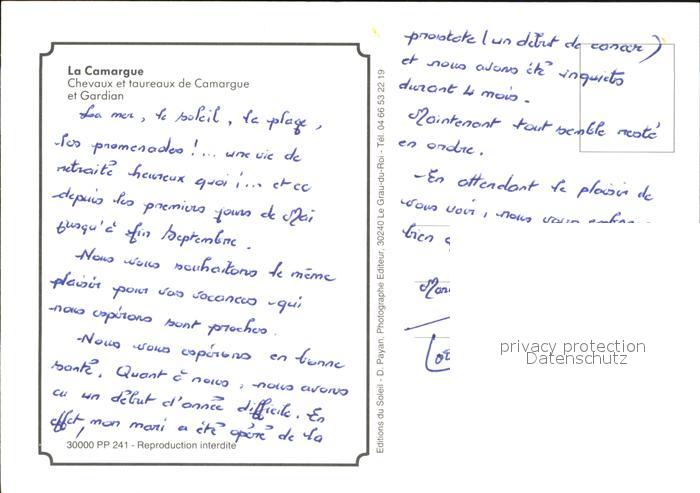 La Camargue
Chevaux et taureaux de Camargue
et Gardian
La mer, le soleil, la plage,
les promenades !... une vie de
retraité heureux quoi !... et ce
depuis les premiers jours de Mai
jusqu'à fin Septembre.
Nous vous souhaitons le même
plaisir pour vos vacances qui
nous espérons sont proches.
Nous vous espérons en bonne
santé. Quant à nous, nous avons
eu un début d'année difficile. En
effet, mon mari a été opéré de la
30000 PP 241 - Reproduction interdite
Editions du Soleil - D. Payan, Photographe Editeur, 30240 Le Grau-du-Roi - Tél. 04 66 53 22 19
prostate (un début de cancer)
et nous avons été inquiets
durant 4 mois.
Maintenant tout semble resté
en ordre.
En attendant le plaisir de
vous voir, nous vous
bien
privacy protection
Datenschutz